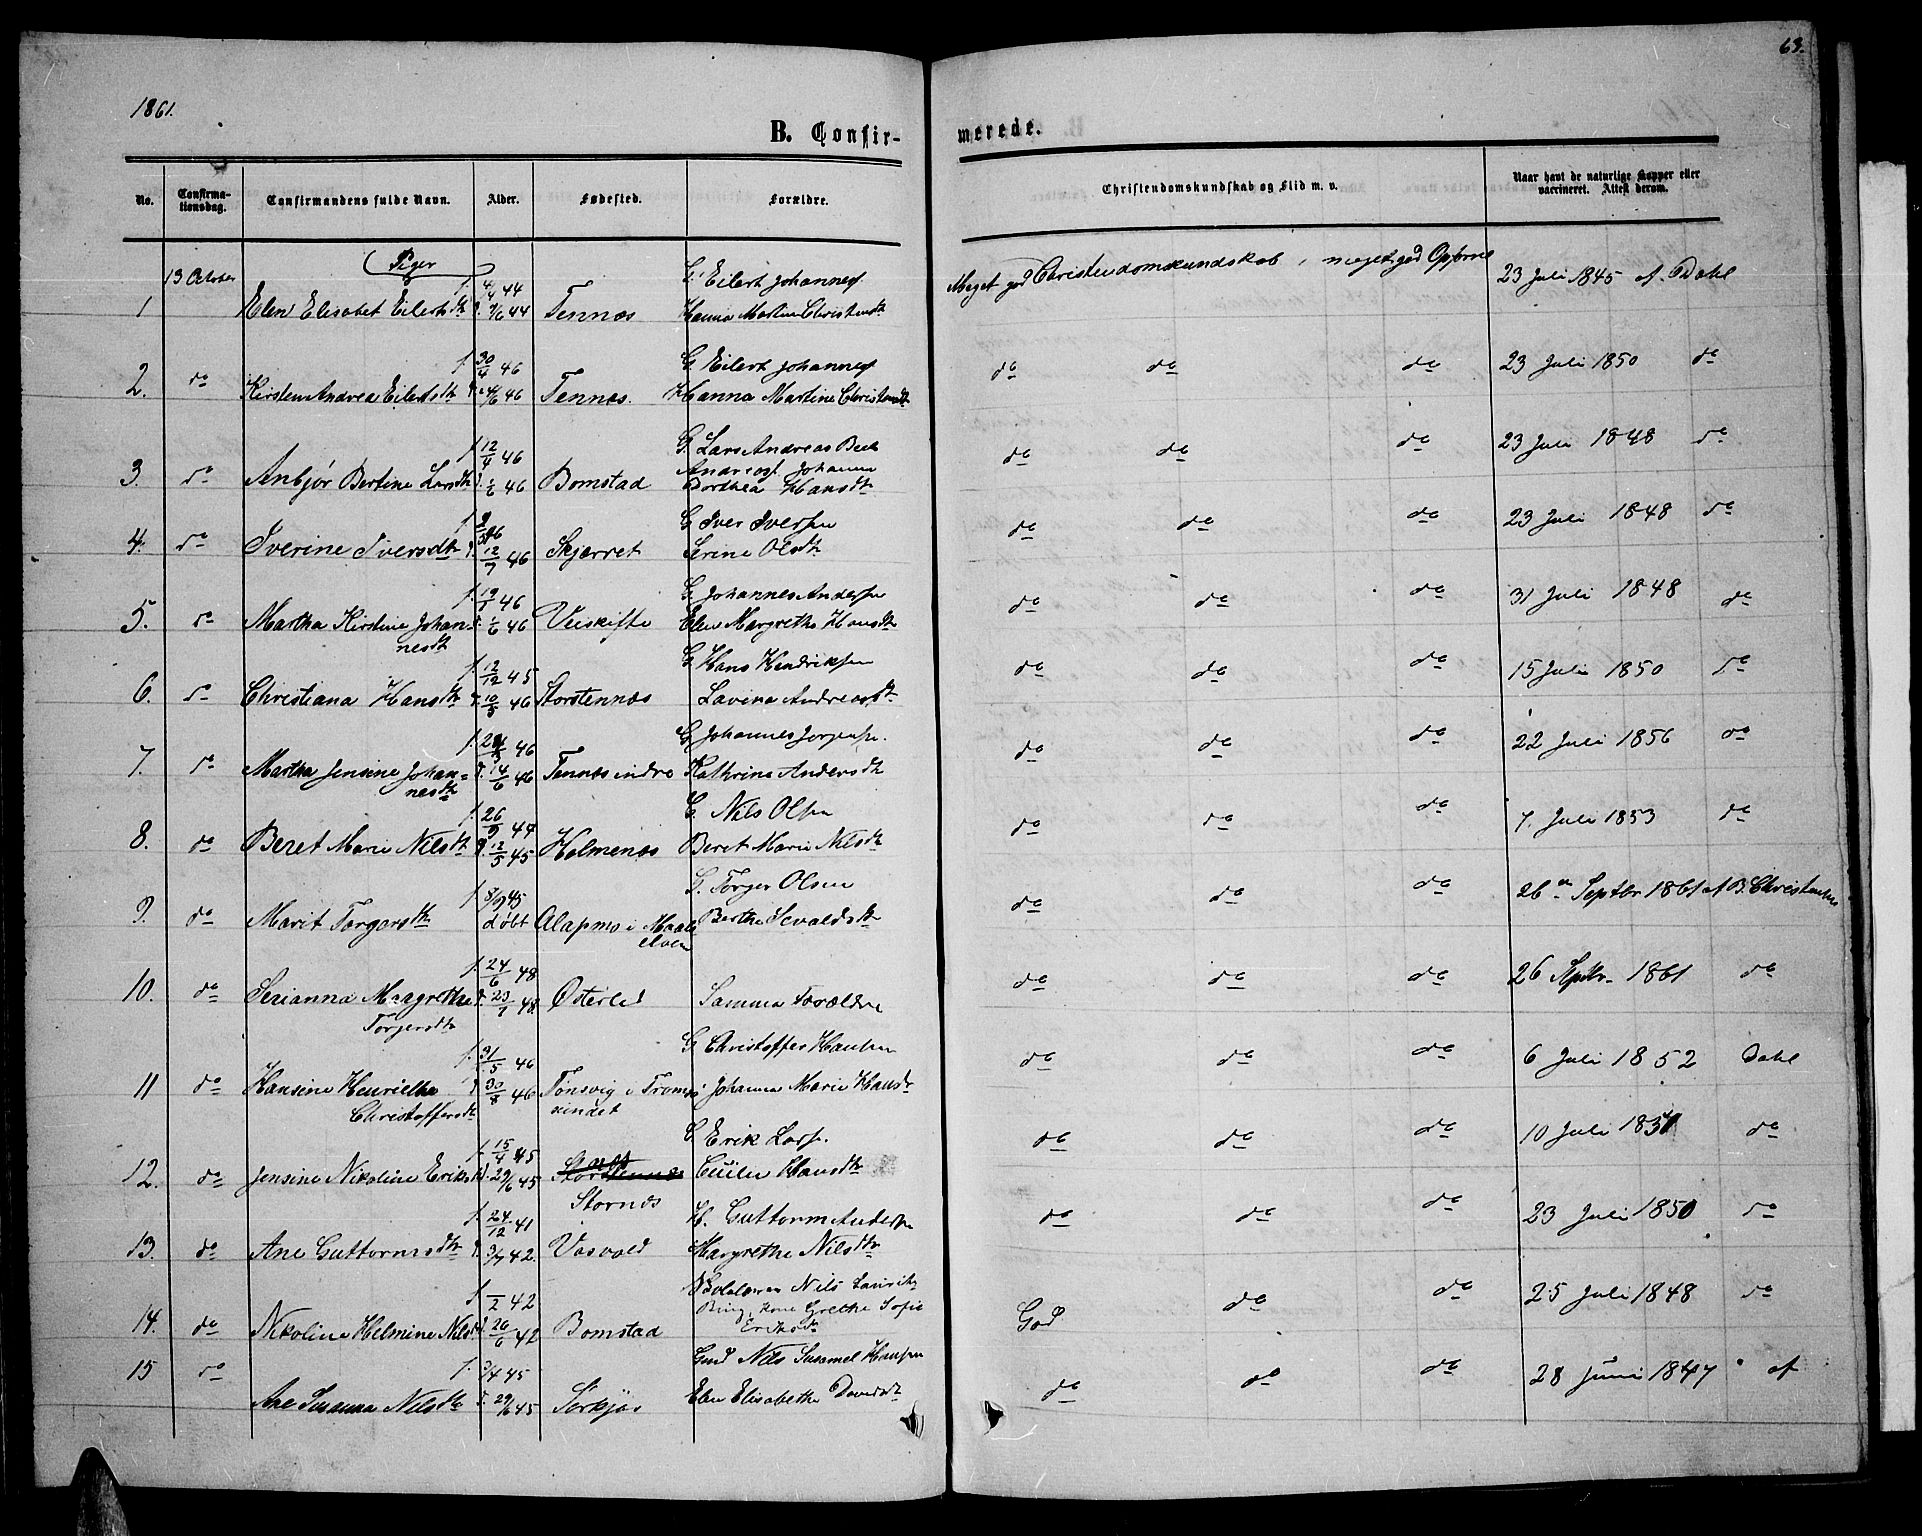 1861.
63.
B. Confir-
merede.
No.
Confirma-
tionsdag.
Confirmandens fulde Navn.
Alder.
Fødested.
Forældre.
Christendomskundskab og Flid m. v.
Naar havt de naturlige Kopper eller
vaccineret. Attest derom.
Piger
13 October
G. Eilert Johannes
Meget god Christendomskundskab, meget god Opførsel
1 Elen Elisabet Eilertsdtr f. 4/4 44 d. 9/6 44 Tennæs Hanna Martine Christensdtr 23 Juli 1845 af Dahl
f. 30/4 46 G Eilert Johannes
2. do Kirsten Andrea Eilertsdtr 46 Tennæs. Hanna Martine Christensdtr do do do 23 Juli 1850 do
f. 12/4 46 G. Lars Andreas Beck
Andreas Johanna
3. do Anbjør Bertine Larsdtr d. 1/6 46 Bomstad Dorthea Hansdtr do do do 23 Juli 1848 do
G Iver Iversen
4. do Iverine Iversdtr d. 12/7 46 Skjærret Serine Olsdtr do do do 23 Juli 1848 do
46 G Johannes Andersen
5. do Martha Kirstine Johan- d. 1/6 46 Veiskifte Elen Margrethe Hansdtr do do do 31 Juli 1848 do
nesdtr
f. 12/12 45 G Hans Hendriksen
6. do Christiana Hansdtr d. 10/5 46 Storstennæs Lavina Andreasdtr do do do 15 Juli 1850 do
46 G Johannes Jørgensen.
7. do Martha Jensine Johan- d. 14/6 46 Tennæs indre Kathrine Andersdtr do do do 22 Juli 1856 do
nesdtr
f. 26/9 44 G. Nils Olsen
8. do Beret Marie Nilsdtr d. 12/5 45 Holmenæs Beret Marie Nilsdtr do do do 7. Juli 1853 do
f. 8/9 45 G. Torger Olsen
9. do Marit Torgersdtr døbt Alapmo i Maals Berthe Sevaldsdtr do do do 26 Septbr 1861 af B. Christensen
elven
f. 24/6 48
10. do Serianna Margrethe d. 23/7 48 Østerled Samme Forældre do do do 26 Septbr. 1861 do
Torgersdtr
f. 31/5 46 G Christoffer Hansen
11 do Hansine Henriette d. 30/8 46 Tønsvig i Tromsø Johanna Marie Hansdtr do do do 6 Juli 1852 Dahl
Christoffersdtr sundet
f. 15/4 45 G Erik Larsen.
12. do Jensine Nikoline Eriksdtr d. 29/6 45 Cecilie Hansdtr do do do 10 Juli 1851 do
Stornæs
f. 24/12 41 H. Guttorm Andersen
13. do Ane Guttormsdtr d. 3/7 42. Vasvold Margrethe Nilsdtr do do do 23 Juli 1850 do
f. –/2 42 Nils Lauritz
Bing, Kone Grethe Sofie
14. do Nikoline Helmine Nilsdtr d. 26/6 42 Bomstad Eriksdtr God do do 25 Juli 1848 do
15 do f. 3/4 45 Gmd Nils Susamel Hansen
Ane Susanna Nilsdtr d. 29/6 45 Sørkjos Elen Elisabethe Davidsdtr do do do 28 Juni 1847 af